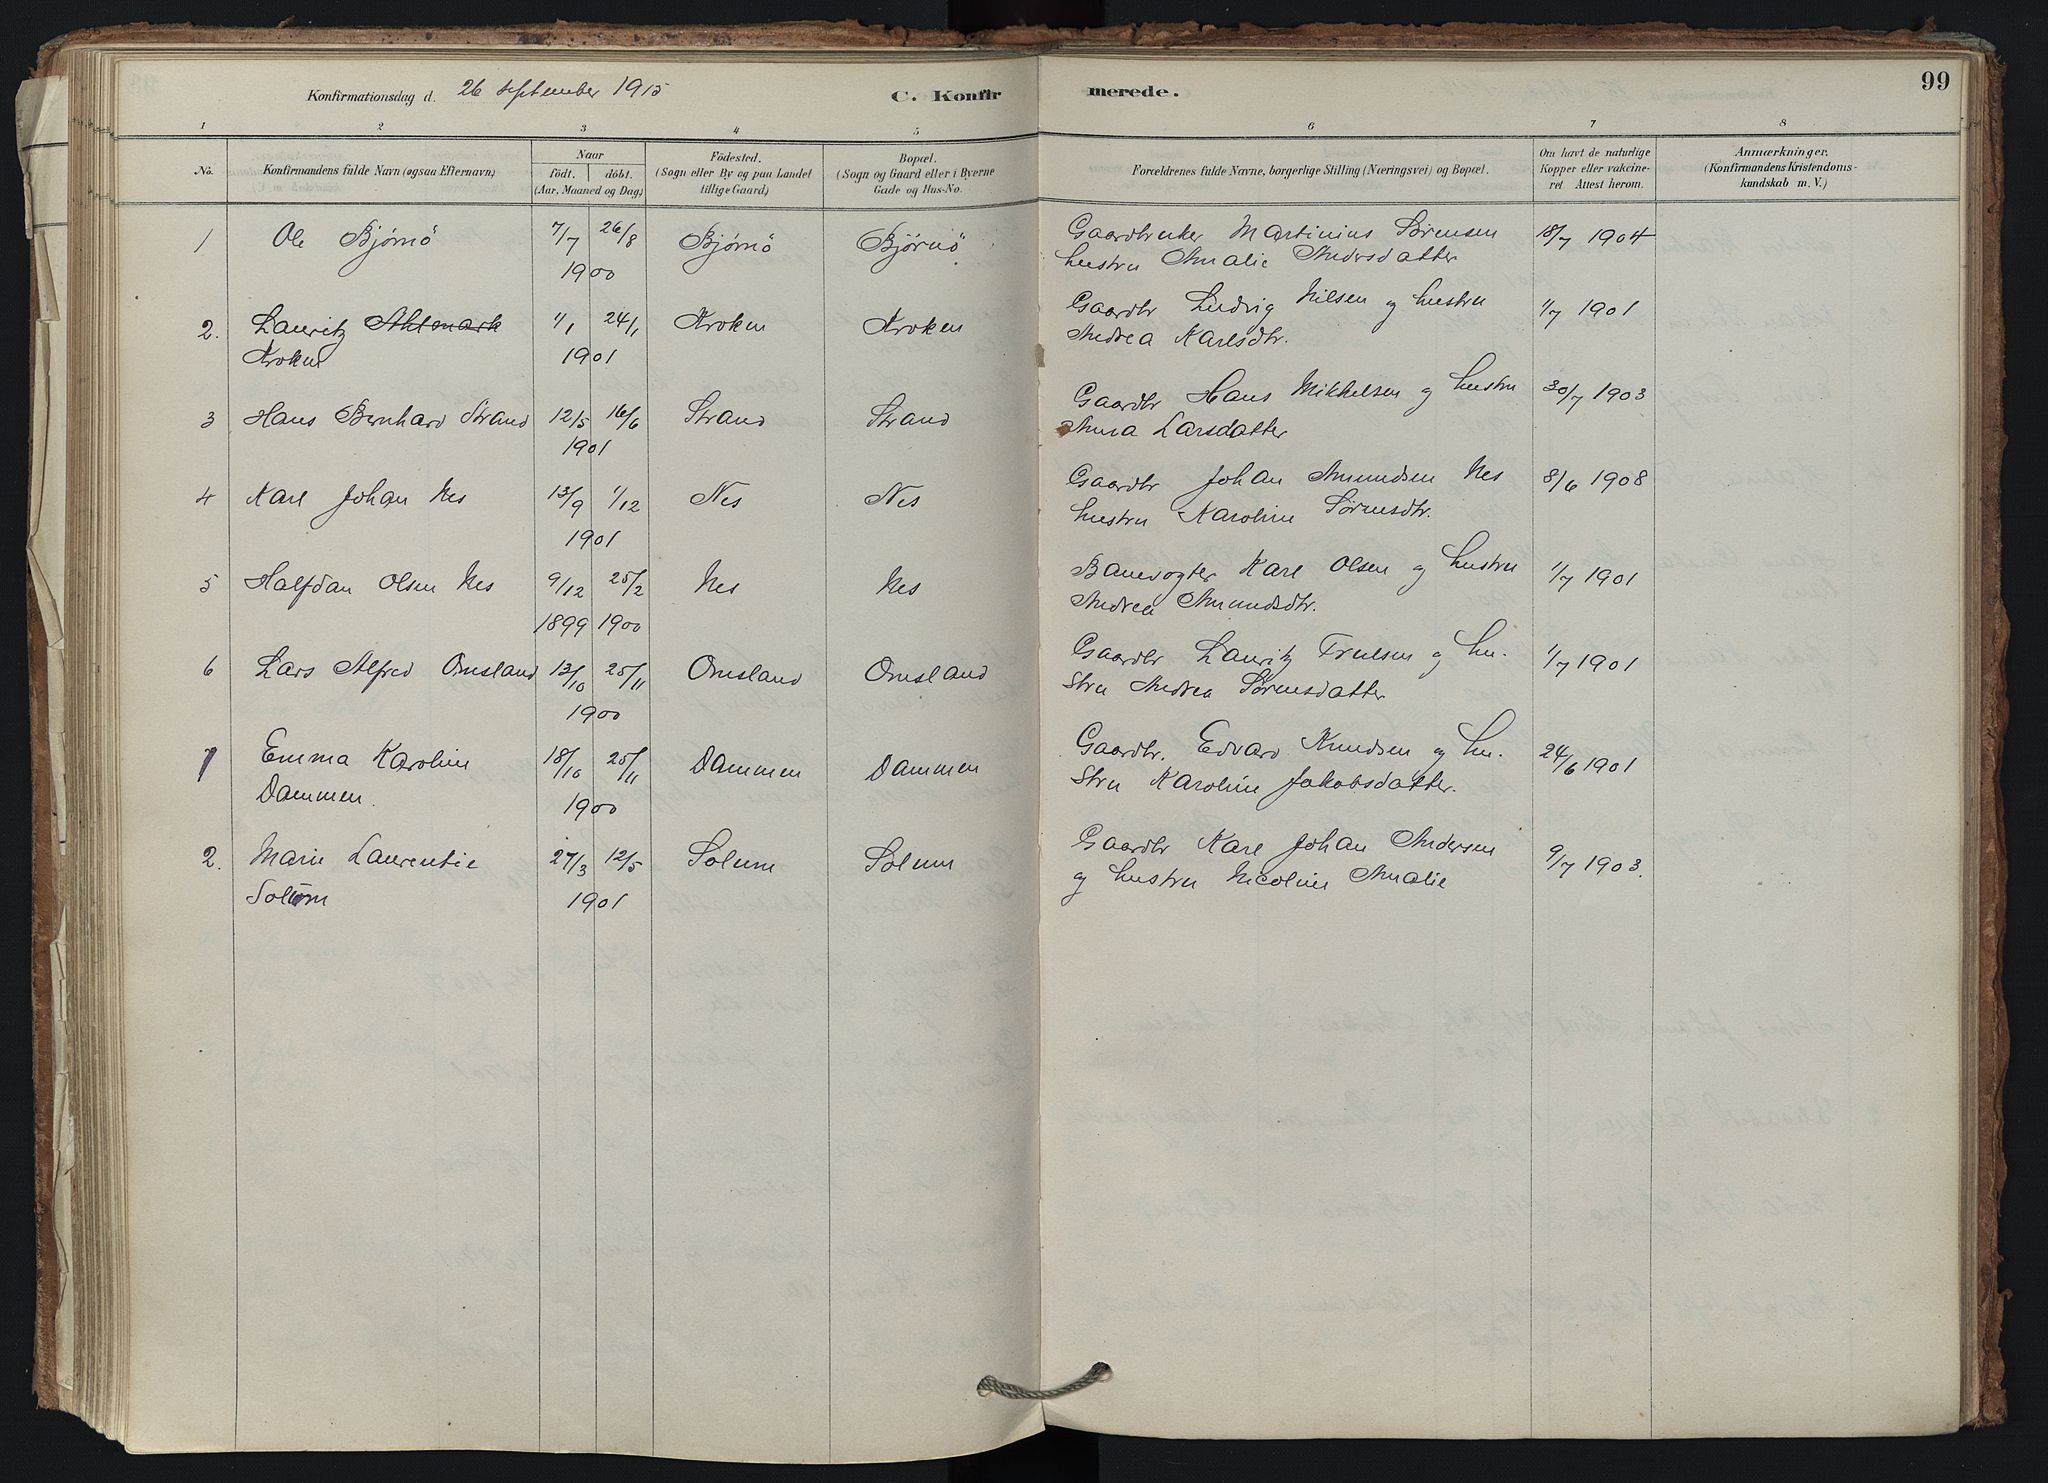 Konfirmationsdag d. 26 september 1915 C. Konfirmerede. 99
1 2 3 4 5 6 7 8
No. Konfirmandens fulde Navn (ogsaa Efternavn) Naar født. døbt. (Aar, Maaned og Dag) Födested. (Sogn eller By og paa Landet tillige Gaard) Bopæl. (Sogn og Gaard eller i Byerne Gade og Hus-No. Forældrenes fulde Navne, borgerlige Stilling (Næringsvei) og Bopæl. Om havt de naturlige Kopper eller vakcineret Attest herom. Anmærkninger. (Konfirmandens Kristendomskundskab m. V.)
1 Ole Bjørnö 7/7 26/8 Bjørnö Bjørnö Gaardbruker Martinius Sørensen 18/7 1904
1900 hustru Amalie Andersdatter
2. Lauritz Ahlmark 1/1 24/1 Kroken Kroken Gaardbr Ludvig Nilsen og hustru 1/7 1901
Kroken 1901 Andrea Karlsdtr.
3 Hans Bernhard Strand 12/5 16/6 Strand Strand Gaardbr Hans Mikkelsen og hustru 30/7 1903
1901 Anna Larsdatter
4 Karl Johan Nes 13/9 1/12 Nes Nes Gaardbr Johan Amundsen Nes 8/6 1908
1901 hustru Karoline Sørensdtr.
5 Halfdan Olsen Nes 9/12 25/2 Nes Nes Banevogter Karl Olsen og hustru 1/7 1901
1899 1900 Andrea Amundsdtr.
6 Lars Alfred Omsland 13/10 25/11 Omsland Omsland Gaardbr Lauritz Trulsen og hu- 1/7 1901
1900 stru Andrea Sørensdatter
1 Emma Karoline 18/10 25/11 Dammen Dammen Gaardbr. Edvard Knudsen og hu- 24/6 1901
Dammen. 1900 stru Karoline Jakobsdatter.
2. Marie Laurentie 27/3 12/5 Solum Solum Gaardbr Karl Johan Andersen 9/7 1903.
Solum 1901 og hustru Nicoline Amalie